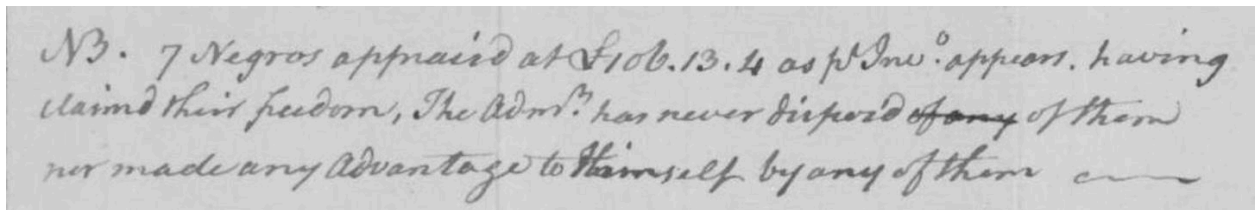 NB. 7 Negros appraisd at £106.13.4 as pr Invo. appears. having
claimd their freedom, The Admr. has never disposd of any of them
nor made any Advantage to Himself by any of them